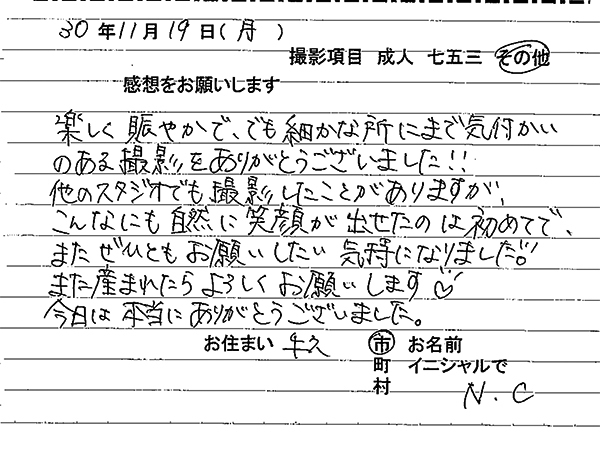 30年11月19日(月)
撮影項目 成人 七五三 その他
感想をお願いします
楽しく賑やかで、でも細かな所にまで気付かい
のある撮影をありがとうございました!!
他のスタジオでも撮影したことがありますが、
こんなにも自然に笑顔が出せたのは初めてで、
またぜひともお願いしたい気持になりました!!
また産まれたらよろしくお願いします♡
今日は本当にありがとうございました。
お住まい 牛久 市 お名前
町 イニシャルで
村 N.C